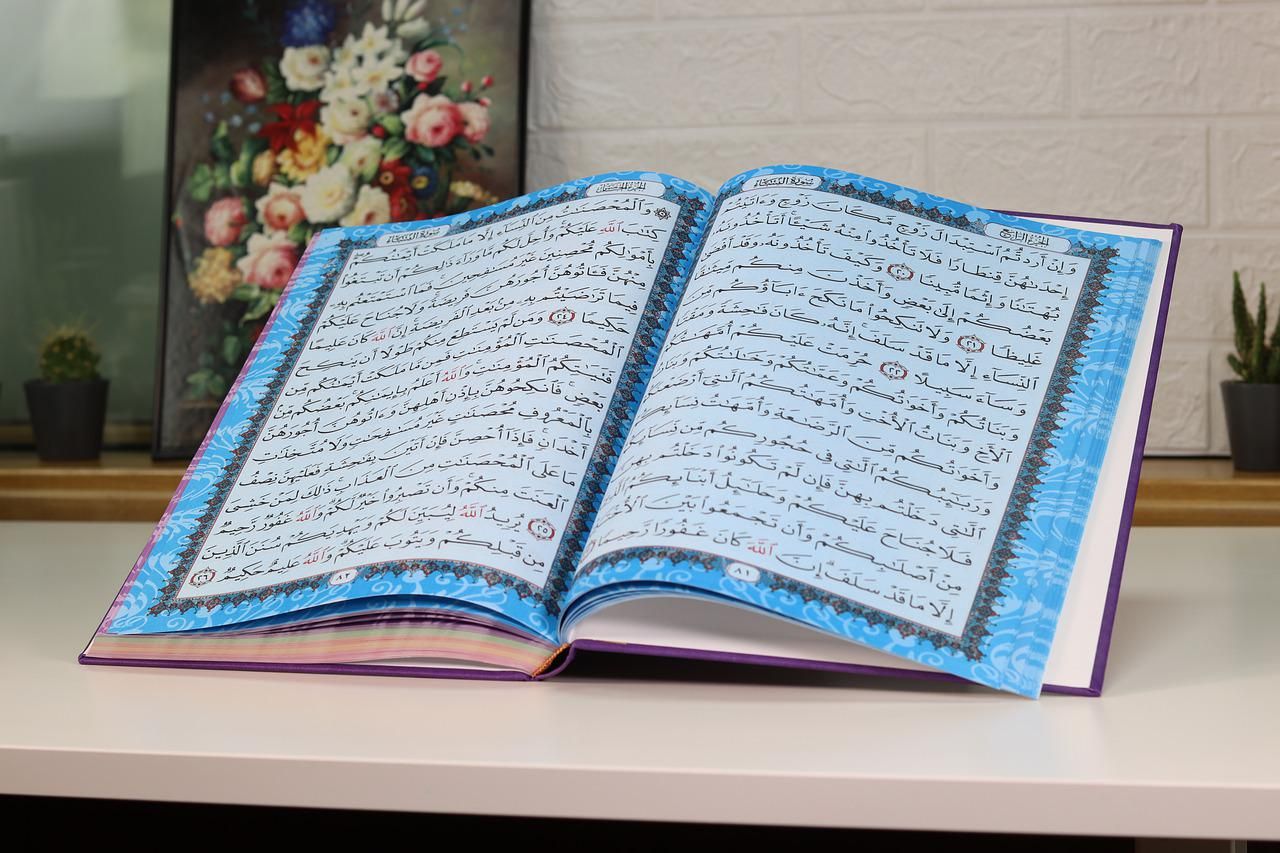 سُورَةُ النِّسَاءِ
الجُزْءُ الرَّابِعُ
وَإِنْ أَرَدتُّمُ ٱسْتِبْدَالَ زَوْجٍ مَّكَانَ زَوْجٍ وَءَاتَيْتُمْ
إِحْدَىٰهُنَّ قِنطَارًا فَلَا تَأْخُذُوا۟ مِنْهُ شَيْـًٔا أَتَأْخُذُونَهُۥ
بُهْتَـٰنًا وَإِثْمًا مُّبِينًا ٢٠ وَكَيْفَ تَأْخُذُونَهُۥ وَقَدْ أَفْضَىٰ
بَعْضُكُمْ إِلَىٰ بَعْضٍ وَأَخَذْنَ مِنكُم مِّيثَـٰقًا
غَلِيظًا ٢١ وَلَا تَنكِحُوا۟ مَا نَكَحَ ءَابَآؤُكُم مِّنَ
ٱلنِّسَآءِ إِلَّا مَا قَدْ سَلَفَ إِنَّهُۥ كَانَ فَـٰحِشَةً وَمَقْتًا
وَسَآءَ سَبِيلًا ٢٢ حُرِّمَتْ عَلَيْكُمْ أُمَّهَـٰتُكُمْ
وَبَنَاتُكُمْ وَأَخَوَٰتُكُمْ وَعَمَّـٰتُكُمْ وَخَـٰلَـٰتُكُمْ
ٱلْأَخِ وَبَنَاتُ ٱلْأُخْتِ وَأُمَّهَـٰتُكُمُ ٱلَّـٰتِىٓ أَرْضَعْنَكُمْ
وَأَخَوَٰتُكُم مِّنَ ٱلرَّضَـٰعَةِ وَأُمَّهَـٰتُ نِسَآئِكُمْ
وَرَبَـٰٓئِبُكُمُ ٱلَّـٰتِى فِى حُجُورِكُم مِّن نِّسَآئِكُمُ
ٱلَّـٰتِى دَخَلْتُم بِهِنَّ فَإِن لَّمْ تَكُونُوا۟ دَخَلْتُم بِهِنَّ
فَلَا جُنَاحَ عَلَيْكُمْ وَحَلَـٰٓئِلُ أَبْنَآئِكُمُ
مِنْ أَصْلَـٰبِكُمْ وَأَن تَجْمَعُوا۟ بَيْنَ ٱلْأُخْتَيْنِ
إِلَّا مَا قَدْ سَلَفَ إِنَّ ٱللَّهَ كَانَ غَفُورًا رَّحِيمًا
٨١
الجُزْءُ الخَامِسُ
سُورَةُ النِّسَاءِ
وَٱلْمُحْصَنَـٰتُ مِنَ ٱلنِّسَآءِ إِلَّا مَا مَلَكَتْ أَيْمَـٰنُكُمْ
كِتَـٰبَ ٱللَّهِ عَلَيْكُمْ وَأُحِلَّ لَكُم مَّا وَرَآءَ ذَٰلِكُمْ أَن تَبْتَغُوا۟
بِأَمْوَٰلِكُم مُّحْصِنِينَ غَيْرَ مُسَـٰفِحِينَ فَمَا ٱسْتَمْتَعْتُم بِهِۦ
مِنْهُنَّ فَـَٔاتُوهُنَّ أُجُورَهُنَّ فَرِيضَةً وَلَا جُنَاحَ عَلَيْكُمْ
فِيمَا تَرَٰضَيْتُم بِهِۦ مِنۢ بَعْدِ ٱلْفَرِيضَةِ إِنَّ ٱللَّهَ كَانَ عَلِيمًا
حَكِيمًا ٢٤ وَمَن لَّمْ يَسْتَطِعْ مِنكُمْ طَوْلًا أَن يَنكِحَ
ٱلْمُحْصَنَـٰتِ ٱلْمُؤْمِنَـٰتِ فَمِن مَّا مَلَكَتْ أَيْمَـٰنُكُم مِّن
فَتَيَـٰتِكُمُ ٱلْمُؤْمِنَـٰتِ وَٱللَّهُ أَعْلَمُ بِإِيمَـٰنِكُم بَعْضُكُم مِّنۢ
بَعْضٍ فَٱنكِحُوهُنَّ بِإِذْنِ أَهْلِهِنَّ وَءَاتُوهُنَّ أُجُورَهُنَّ
بِٱلْمَعْرُوفِ مُحْصَنَـٰتٍ غَيْرَ مُسَـٰفِحَـٰتٍ وَلَا مُتَّخِذَٰتِ
أَخْدَانٍ فَإِذَآ أُحْصِنَّ فَإِنْ أَتَيْنَ بِفَـٰحِشَةٍ فَعَلَيْهِنَّ نِصْفُ
مَا عَلَى ٱلْمُحْصَنَـٰتِ مِنَ ٱلْعَذَابِ ذَٰلِكَ لِمَنْ خَشِىَ
ٱلْعَنَتَ مِنكُمْ وَأَن تَصْبِرُوا۟ خَيْرٌ لَّكُمْ وَٱللَّهُ غَفُورٌ رَّحِيمٌ
٢٥ يُرِيدُ ٱللَّهُ لِيُبَيِّنَ لَكُمْ وَيَهْدِيَكُمْ سُنَنَ ٱلَّذِينَ
مِن قَبْلِكُمْ وَيَتُوبَ عَلَيْكُمْ وَٱللَّهُ عَلِيمٌ حَكِيمٌ ٢٦
٨٢